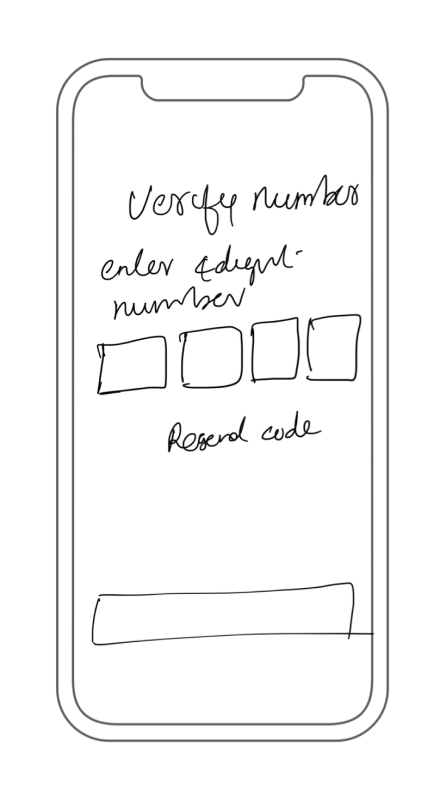 Verify number
enter 4digit
number
Resend code